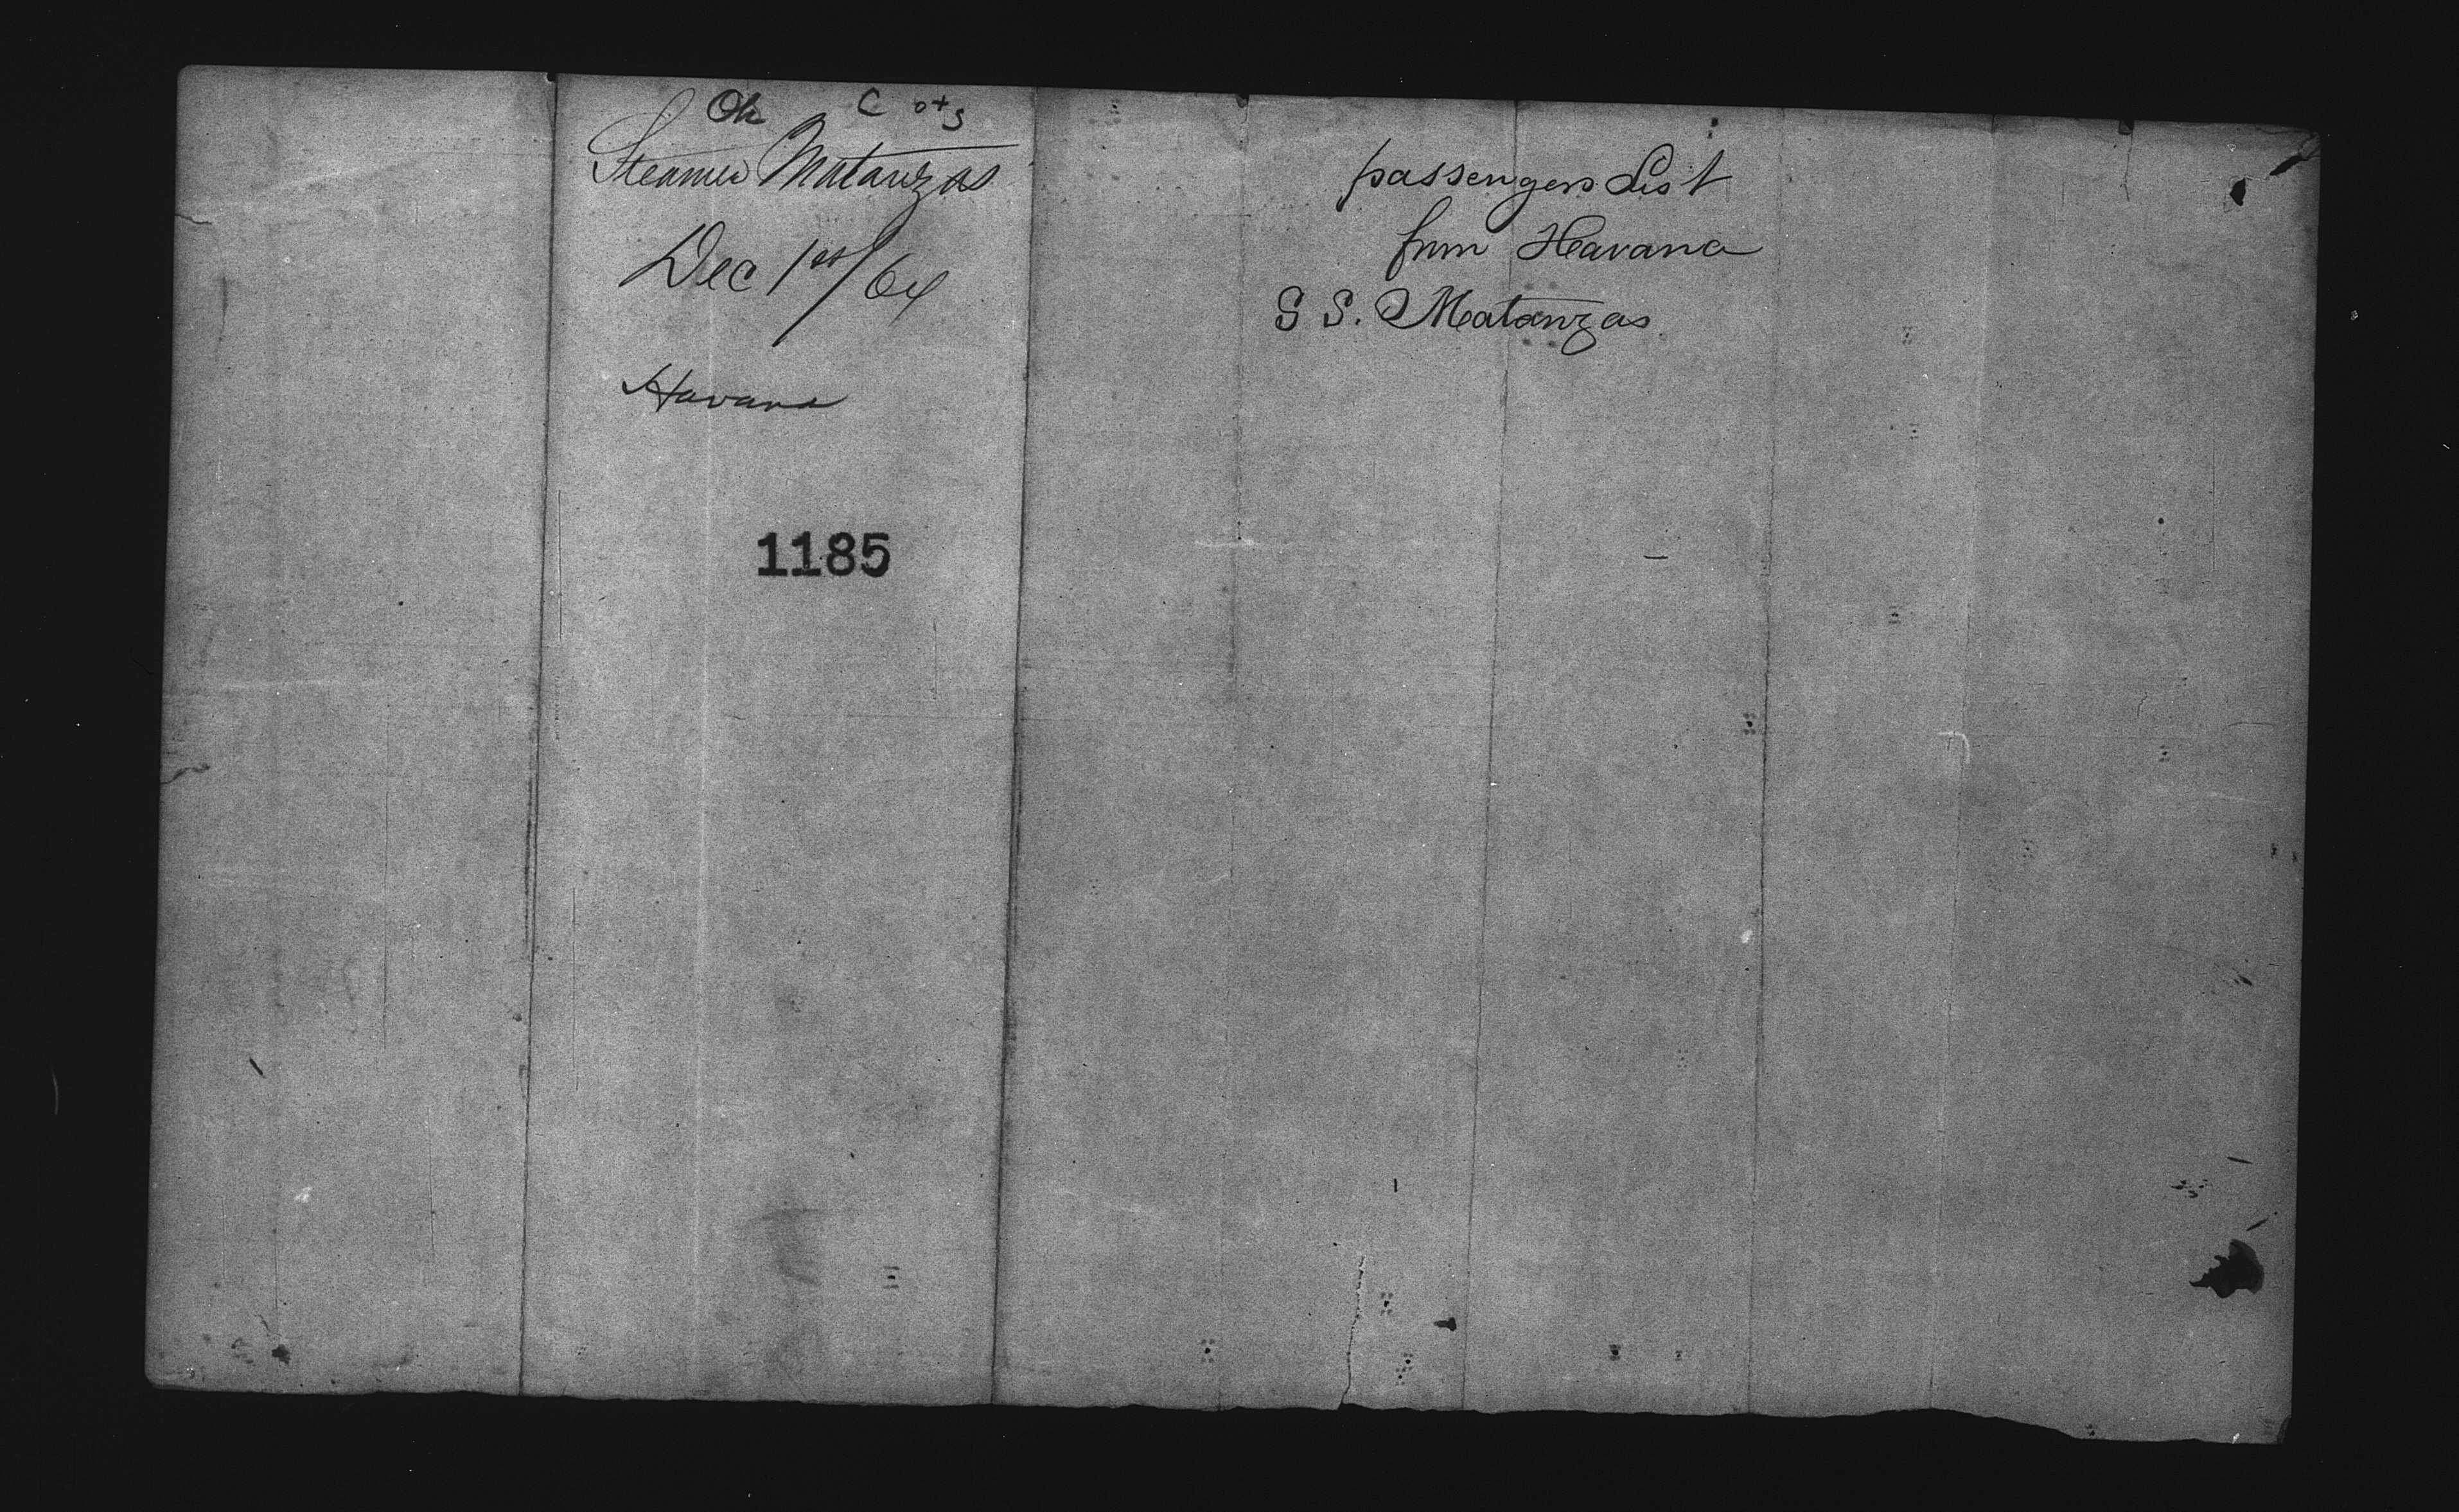 Ok C o+s
Steamer Matanzas
Dec 1st/64
Havana
1185
passengers List
from Havana
S S. Matanzas